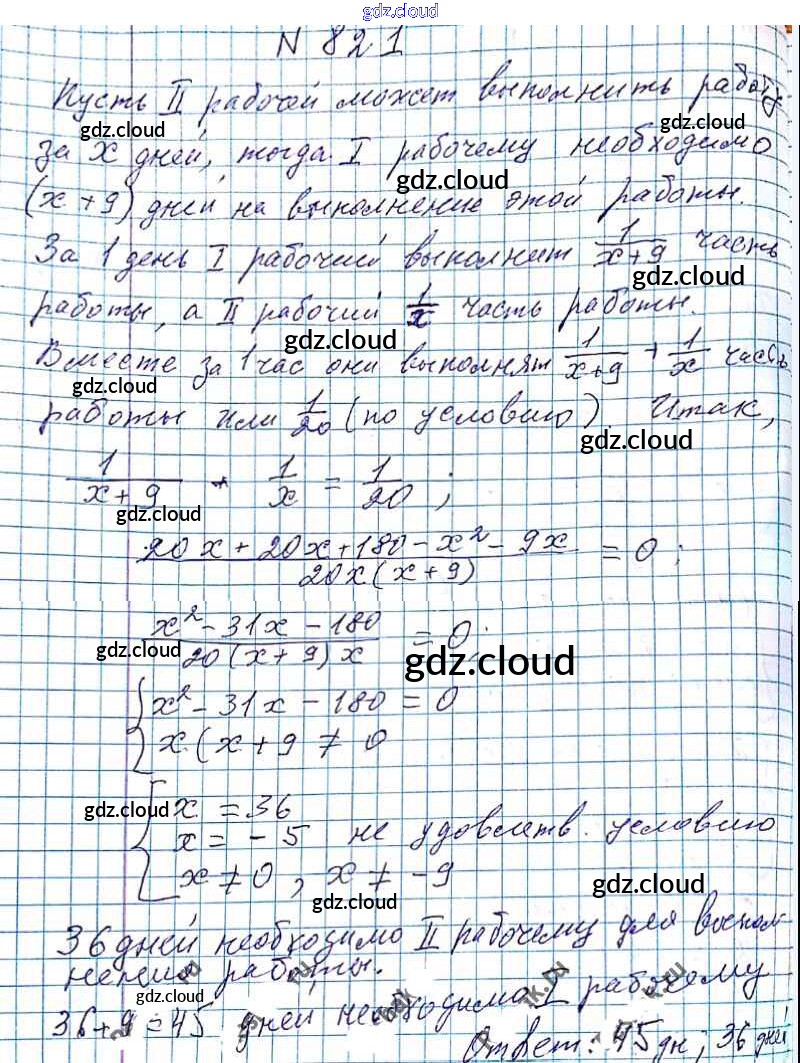 gdz.cloud
N 821
Пусть II рабочий может выполнить работу
gdz.cloud gdz.cloud
за x дней, тогда I рабочему необходимо
gdz.cloud
(x+9) дней на выполнение этой работы.
За 1 день I рабочий выполнит 1/(x+9) часть
gdz.cloud
работы, а II рабочий 1/x часть работы.
gdz.cloud
Вместе за 1 час они выполнят 1/(x+9) + 1/x часть
gdz.cloud
работы или 1/20 (по условию). Итак,
gdz.cloud
1/(x+9) + 1/x = 1/20 ;
gdz.cloud
(20x+20x+180-x²-9x)/(20x(x+9)) = 0 ;
(x²-31x-180)/(20(x+9)x) = 0 ;
gdz.cloud gdz.cloud
{ x²-31x-180=0
x(x+9 ≠ 0
gdz.cloud
[ x = 36
x = -5 не удовлетв. условию
x ≠ 0, x ≠ -9
gdz.cloud gdz.cloud
36 дней необходимо II рабочему для
работы.
gdz.cloud
36+9=45 дней необходимо I рабочему
Ответ: 45 дн; 36 дней
gdz.cloud